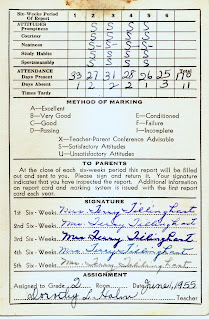 Six-Weeks Period of Report 1 2 3 4 5 6
ATTITUDES
Promptness S S S S S
Courtesy S S S S S
Neatness S S S S S
Study Habits S S S S S
Sportsmanship S S S S S
ATTENDANCE
Days Present 33 27 31 28 26 25
Days Absent 1 2 2 2 1 3 11
Times Tardy
METHOD OF MARKING
A—Excellent
B—Very Good E—Conditioned
C—Good F—Failure
D—Passing I—Incomplete
X—Teacher-Parent Conference Advisable
S—Satisfactory Attitudes
U—Unsatisfactory Attitudes
TO PARENTS
At the close of each six-weeks period this report will be
filled out and sent to you. Please sign and return it. Your signature
indicates that you have inspected the report. Additional information
on report card and marking system is issued with the first
report card each year.
SIGNATURE
1st Six-Weeks. Mrs. Terry Tillinghast
2nd Six-Weeks. Mrs. Terry Tillinghast
3rd Six-Weeks. Mrs. Terry Tillinghast
4th Six-Weeks. Mrs. Terry Tillinghast
5th Six-Weeks. Mrs. Terry Tillinghast
ASSIGNMENT
Assigned to Grade 2 Room Date June 1955
Dorothy L. Teacher